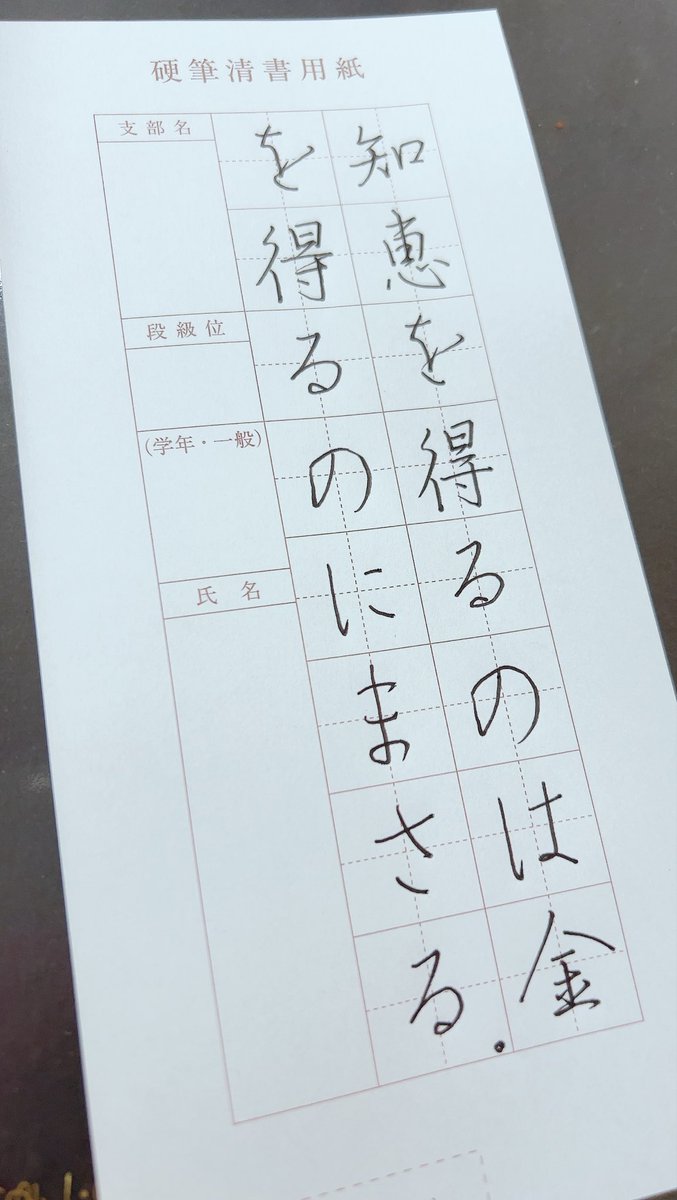 硬筆清書用紙
知恵を得るのは金
を得るのにまさる.
支部名
段級位
(学年・一般)
氏名